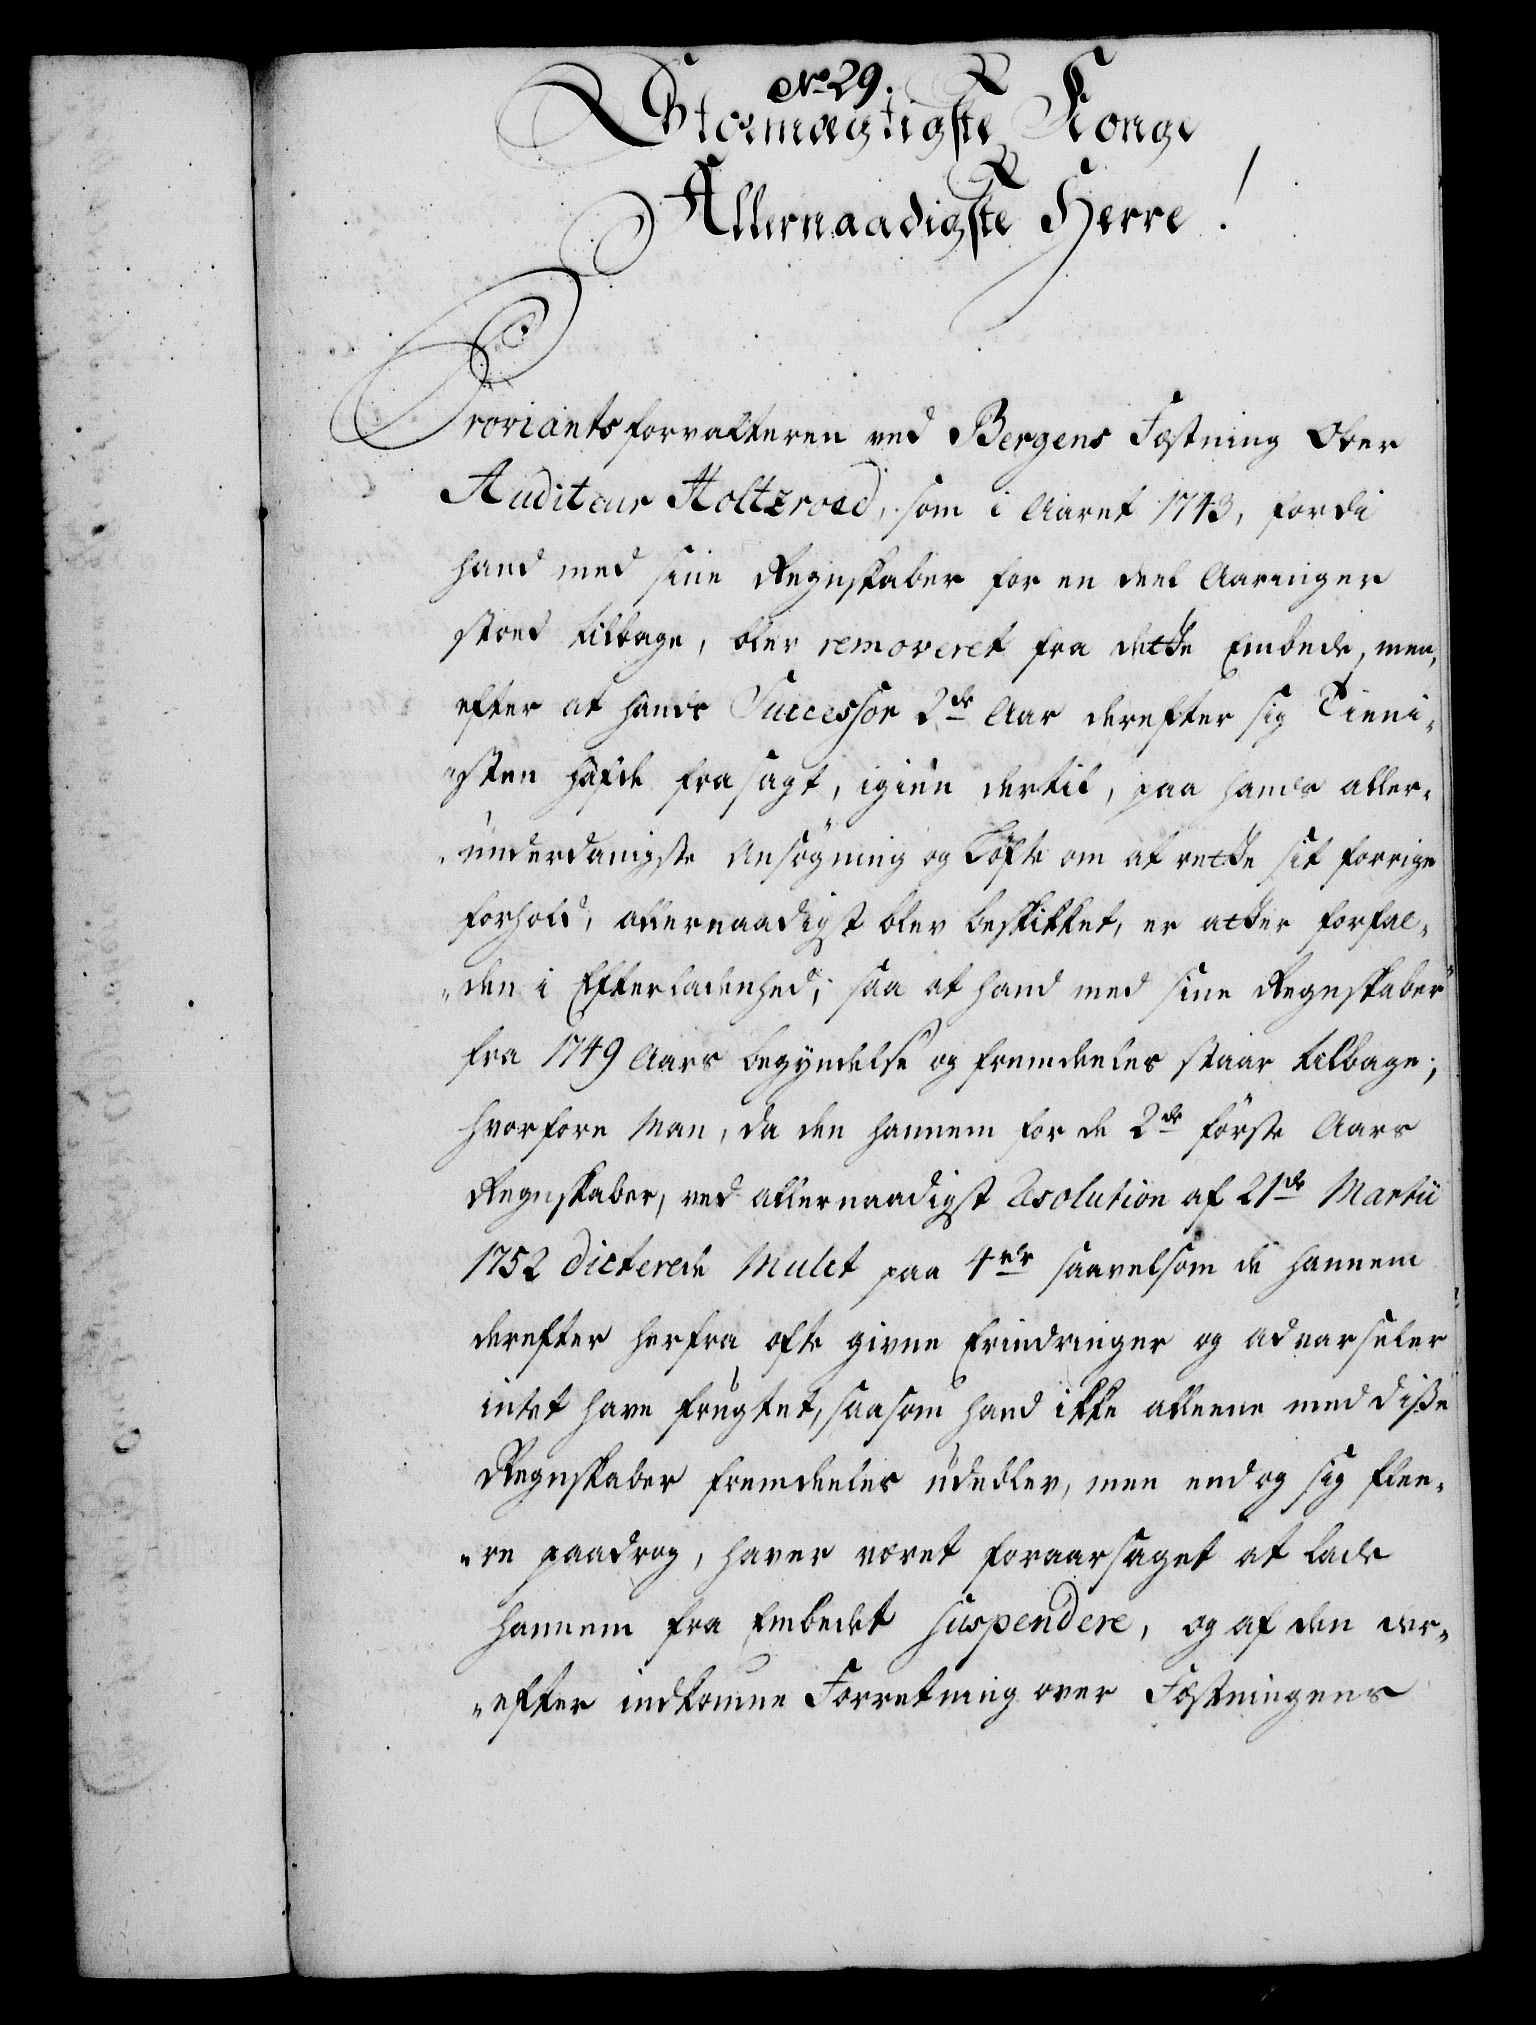 No 29.
Stormægtigste Konge
Allernaadigste Herre!
Proviantsforvalteren ved Bergens Fæstning Ober
Auditeur Holtzroed, som i Aaret 1743, fordi
hand med sine Regnskaber for en deel Aaringer
stoed tilbage, blev removeret fra dette Embede, men,
efter at hands Successor 2de Aar derefter sig Tieni-
"sten hafde frasagt, igien dertil, paa hands aller-
"underdanigste Ansøgning og Løfte om at rette sit forrige
forhold, allernaadigst blev beskikket, er atter forfal-
"den i Efterladenhed, saa at hand med sine Regnskaber
fra 1749 Aars begyndelse og fremdeeles staar tilbage;
hvorfore Man, da den hannem for de 2de første Aars
Regnskaber, ved allernaadigst Resolution af 21de Martii
1752 dicterede Mulct paa 4 rdr saavelsom de hannem
derefter herfra ofte givne Erindringer og advarseler
intet have frugtet, saasom hand ikke alleene med disse
Regnskaber fremdeeles udeblev, men endog sig flee-
"re paadrog, haver været foraarsaget at lade
hannem fra Embedet suspendere, og af den der-
"efter indkomne Forretning over Fæstningens